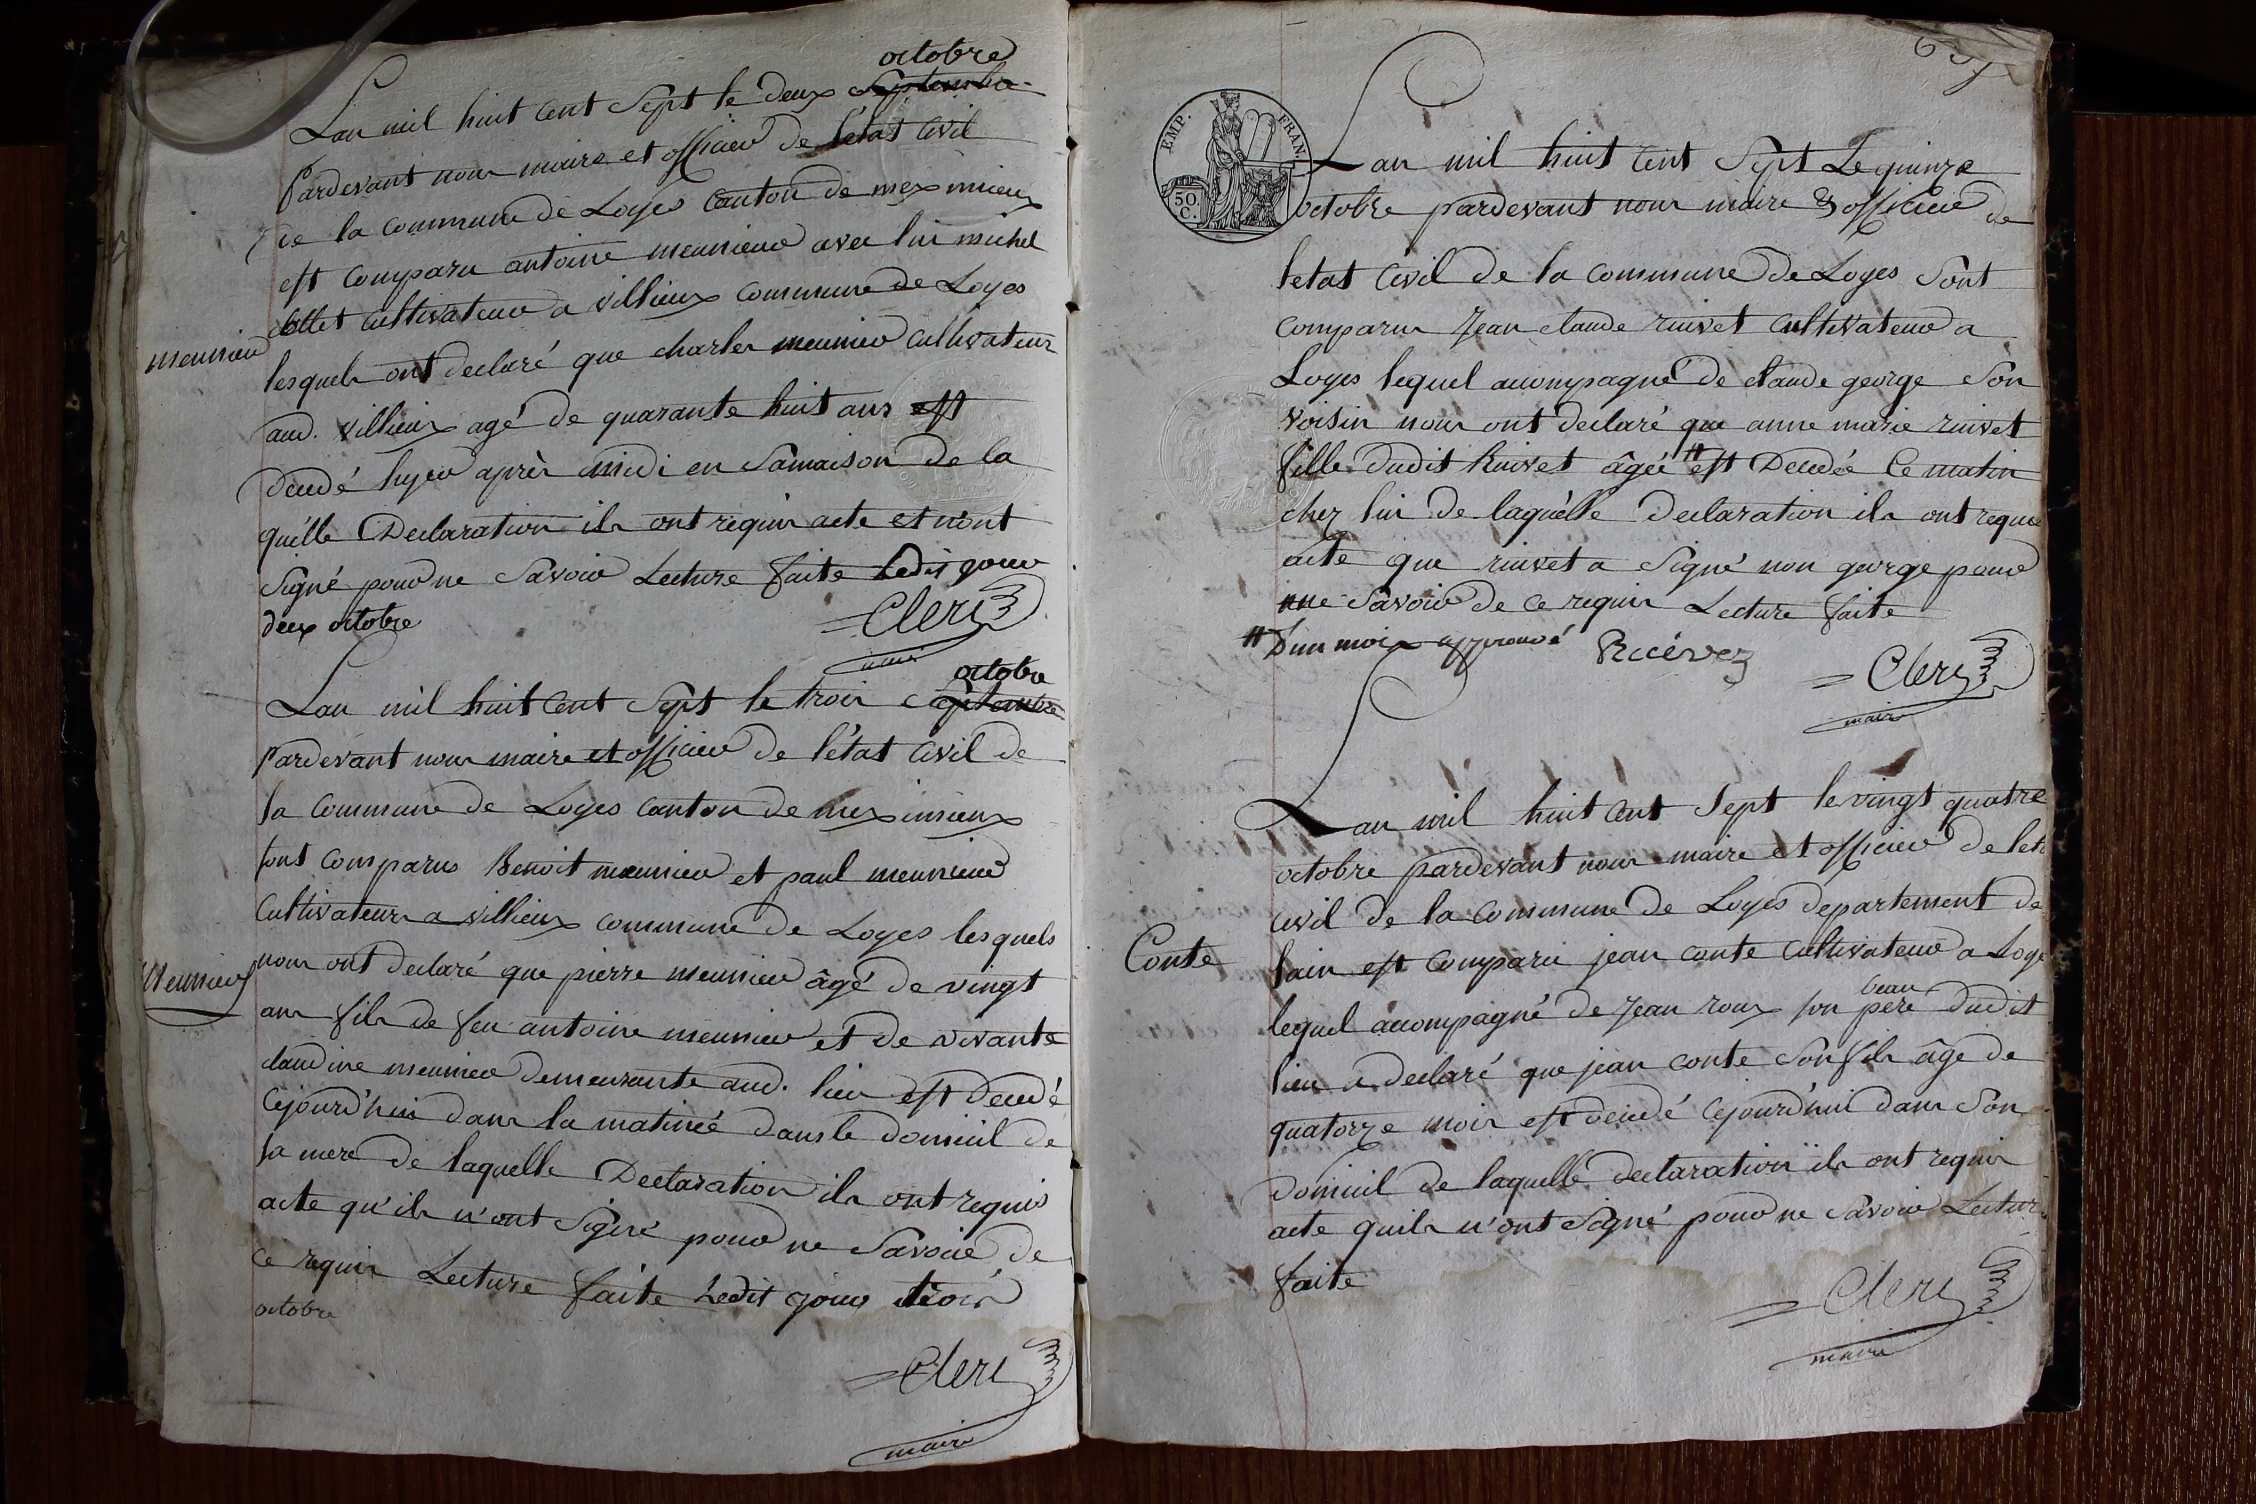 octobre
Lan mil huit Cent Sept le deux Septembre
Pardevant nous maire et officier de létat Civil
de la commune de Loyes Canton de meximieux
est comparu antoine meunieur avec lui michel
collet cultivateur a villieux commune de Loyes
meunieu
lesquels ont declaré que charles meunieu cultivateur
aud. villieux agé de quarante huit ans est
decedé hyer après midi en sa maison de la
quelle Declaration ils ont requis acte et n'ont
signé pour ne Savoir Lecture faite Ledit jour
deux octobre
Clerc
maire
octobre
Lan mil huit Cent Sept le trois Septembre
Pardevant nous maire et officier de létat Civil de
la Commune de Loyes Canton de meximieux
sont comparus Benoit meunieu et paul meunieur
Cultivateurs a villieux commune de Loyes lesquels
Meunieu
nous ont declaré que pierre meunieu âgé de vingt
ans fils de feu antoine meunieu et de vivante
claudine meunieu demeurante aud. lieu est decedé
cejourd'hui dans la matineé dans le domicil de
sa mere de laquelle Declaration ils ont requis
acte qu'ils n'ont Signé pour ne Savoir de
ce requis Lecture faite Ledit jour trois
octobre
Clerc
maire
EMP. FRAN.
50 C.
Lan mil huit Cent Sept Le quinze
octobre pardevant nous maire & officier de
letat Civil de la commune de Loyes Sont
comparus Jean claude ruivet cultivateur a
Loyes lequel accompagné de claude george Son
voisin nous ont declaré que anne marie ruivet
fille dudit Ruivet âgée # est Decedée Ce matin
chez lui de laquelle declaration ils ont requis
acte que ruivet a Signé non george pour
ne Savoir de ce requis Lecture faite
# D'un mois approuvé
Clerc
maire
Lan mil huit Cent Sept le vingt quatre
octobre pardevant nous maire et officier de let
civil de la Commune de Loyes departement de
Conte
lain est Comparu jean conte Cultivateur a Loye
beau
lequel accompagné de Jean roux son pere dudit
lieu a declaré que jean conte Son fils âge de
quatorze mois est decedé cejourd'hui dans Son
domicil de laquelle declaration ils ont requis
acte quils n'ont Signé pour ne Savoir Lectur
faite
Clerc
maire